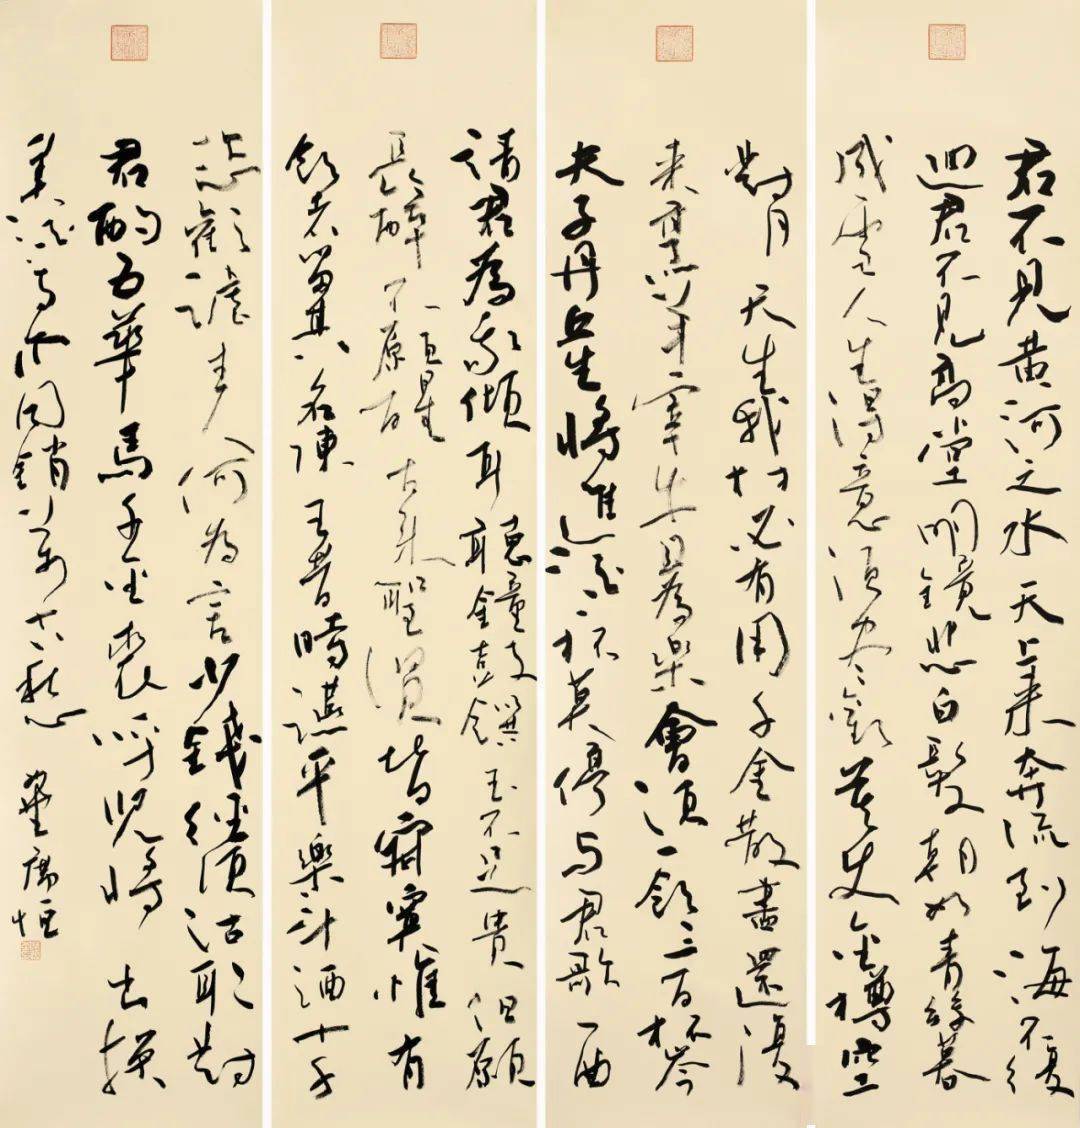 君不見黃河之水天上來奔流到海不復
迴君不見高堂明鏡悲白髮朝如青絲暮
成雪人生得意須盡歡莫使金樽空
對月天生我材必有用千金散盡還復
來烹羊宰牛且為樂會須一飲三百杯岑
夫子丹丘生將進酒杯莫停與君歌一曲
請君為我傾耳聽鐘鼓饌玉不足貴但願
長醉不願醒古來聖賢皆寂寞惟有
飲者留其名陳王昔時讌平樂斗酒十千
恣歡謔主人何為言少錢徑須沽取對
君酌五華馬千金裘呼兒將出換
美酒與爾同銷萬古愁